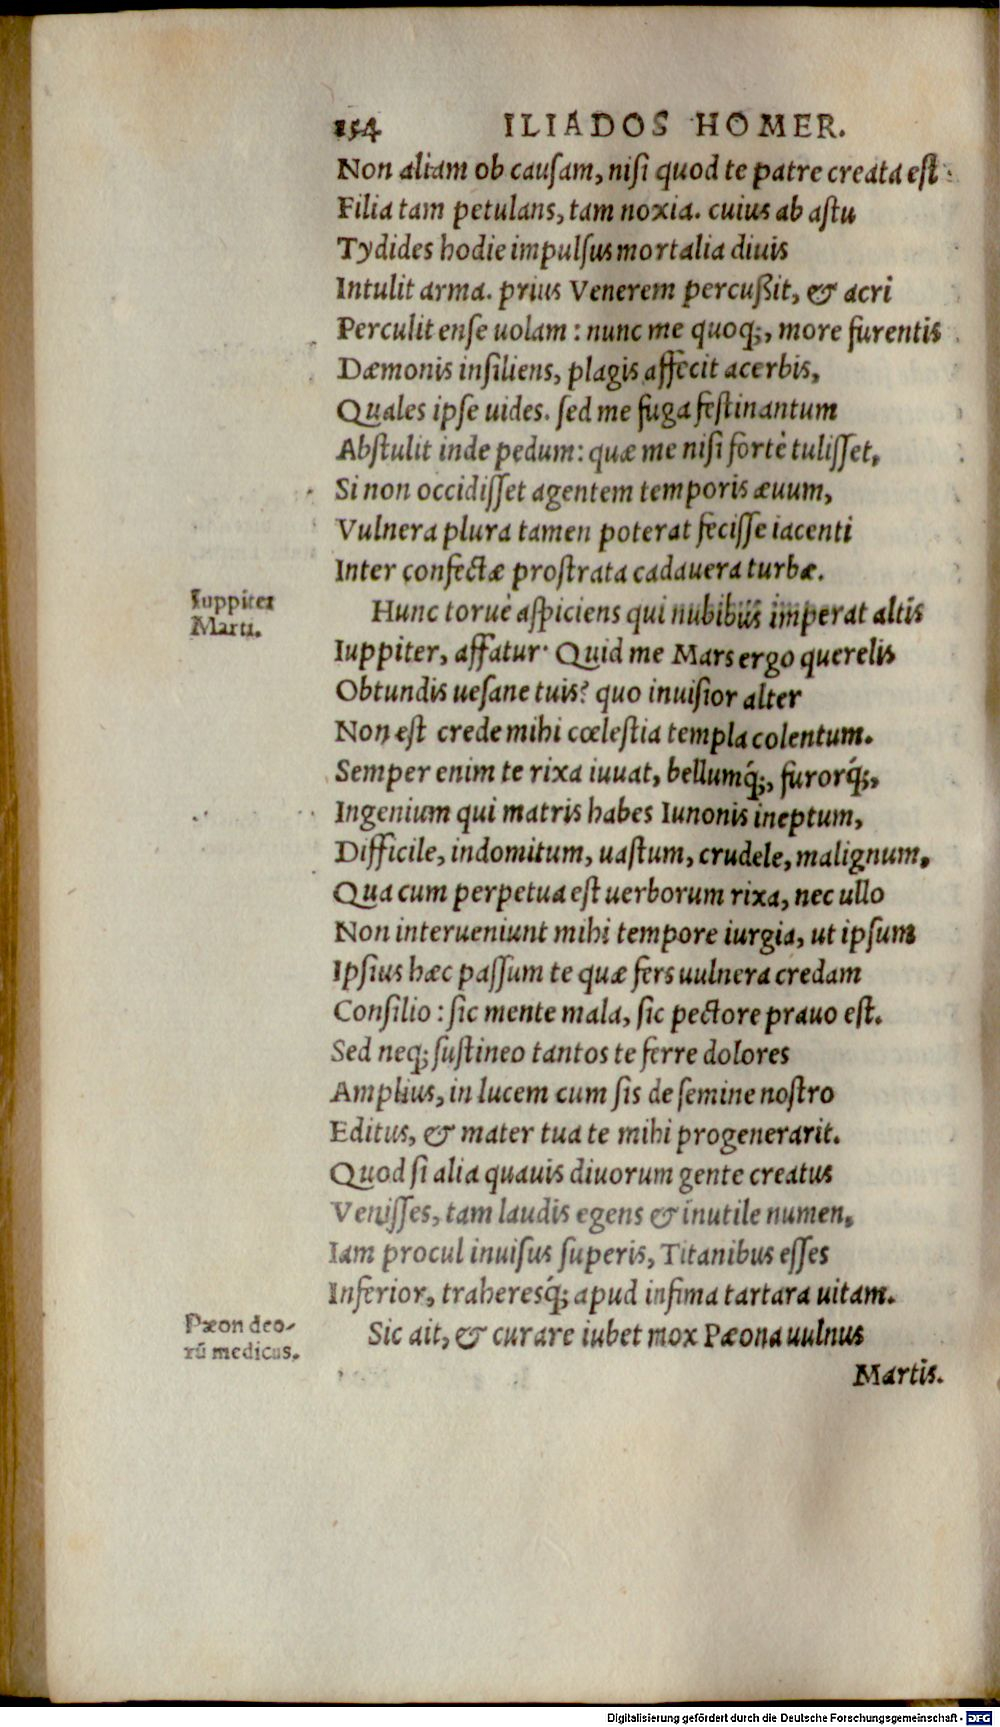 154 ILIADOS HOMER.
Non aliam ob causam, nisi quod te patre creata est
Filia tam petulans, tam noxia. cuius ab astu
Tydides hodie impulsus mortalia diuis
Intulit arma. prius Venerem percußit, & acri
Perculit ense uolam: nunc me quoq;, more furentis
Dæmonis insiliens, plagis affecit acerbis,
Quales ipse uides. sed me fuga festinantum
Abstulit inde pedum: quæ me nisi fortè tulisset,
Si non occidisset agentem temporis æuum,
Vulnera plura tamen poterat fecisse iacenti
Inter confectæ prostrata cadauera turbæ.
Iuppiter
Marti.
Hunc toruè aspiciens qui nubibus imperat altis
Iuppiter, affatur· Quid me Mars ergo querelis
Obtundis uesane tuis? quo inuisior alter
Non est crede mihi cœlestia templa colentum.
Semper enim te rixa iuuat, bellumq́;, furorq́;,
Ingenium qui matris habes Iunonis ineptum,
Difficile, indomitum, uastum, crudele, malignum,
Qua cum perpetua est uerborum rixa, nec ullo
Non interueniunt mihi tempore iurgia, ut ipsum
Ipsius hæc passum te quæ fers uulnera credam
Consilio: sic mente mala, sic pectore prauo est.
Sed neq; sustineo tantos te ferre dolores
Amplius, in lucem cum sis de semine nostro
Editus, & mater tua te mihi progenerarit.
Quod si alia quauis diuorum gente creatus
Venisses, tam laudis egens & inutile numen,
Iam procul inuisus superis, Titanibus esses
Inferior, traheresq́; apud infima tartara uitam.
Pæon deo-
rũ medicus.
Sic ait, & curare iubet mox Pæona uulnus
Martis.
Digitalisierung gefördert durch die Deutsche Forschungsgemeinschaft - DFG